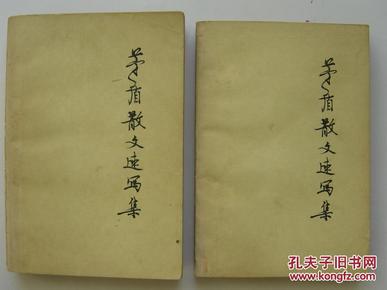 茅盾散文速写集
茅盾散文速写集
孔夫子旧书网